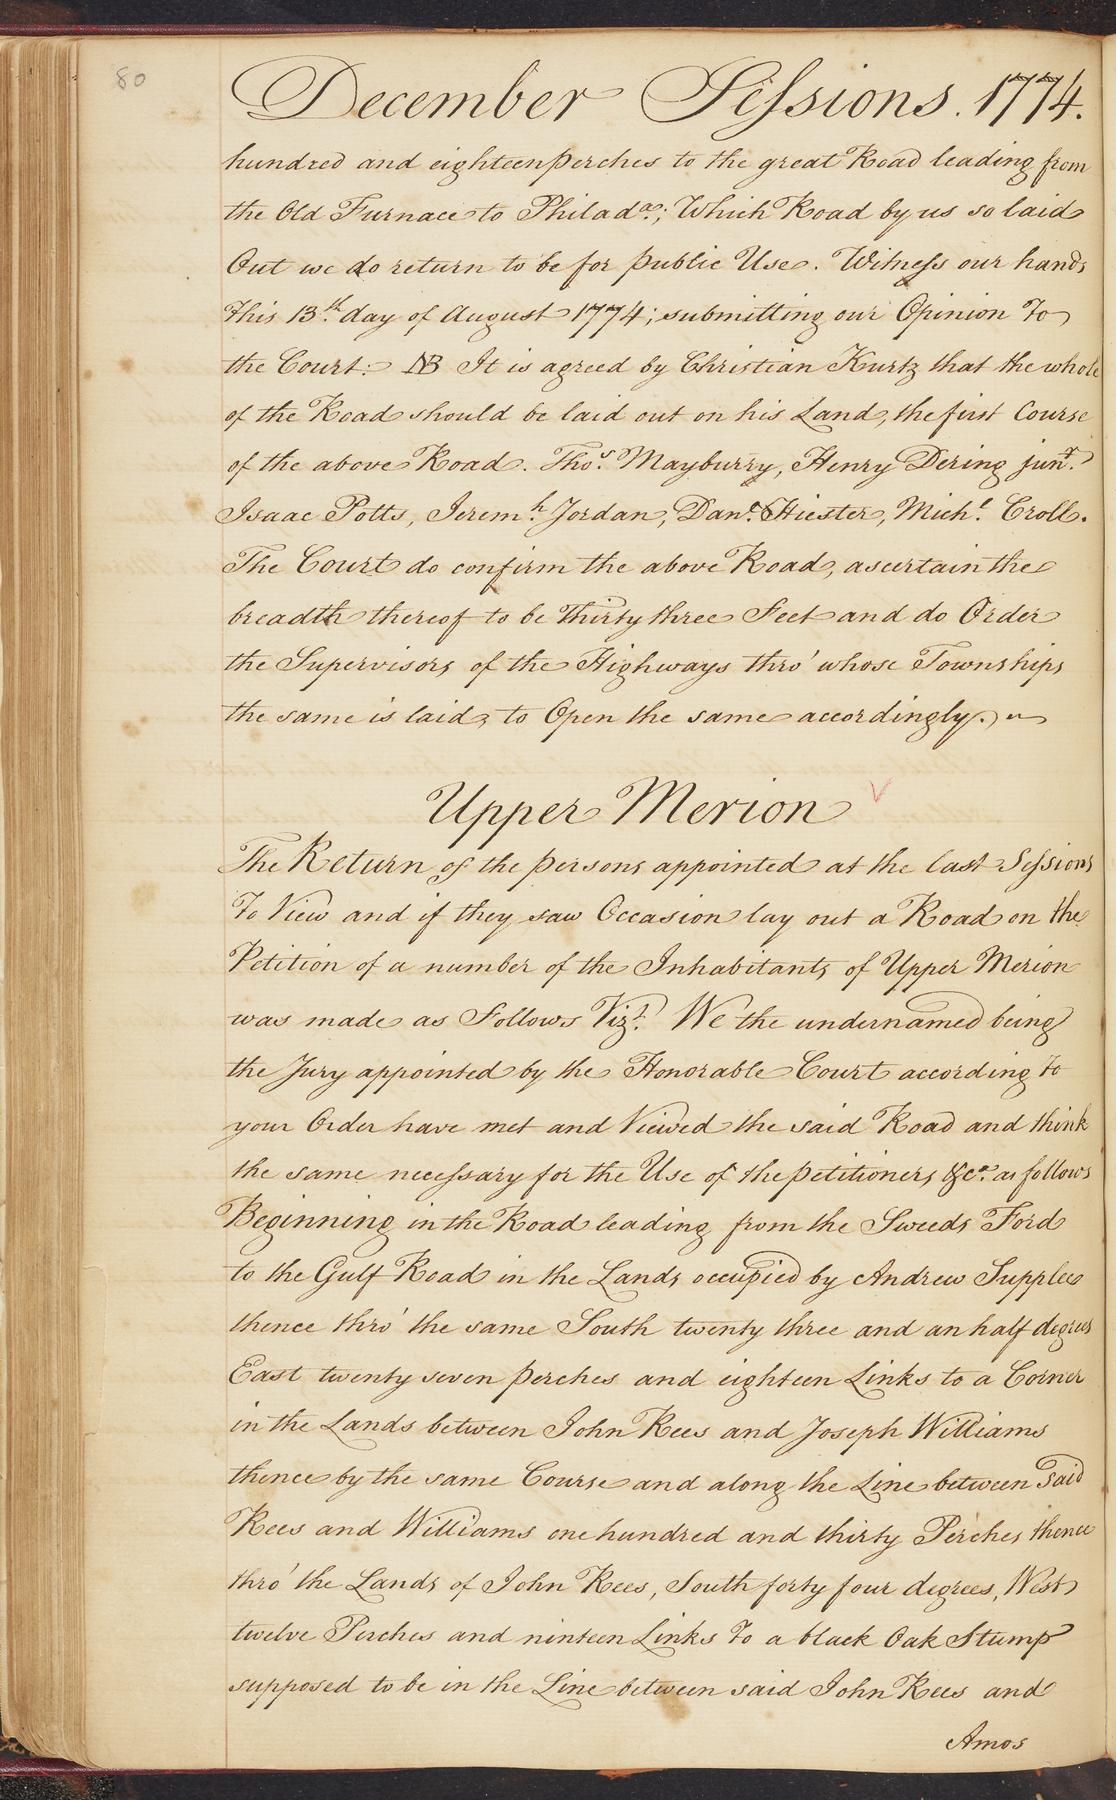 80
December Sessions. 1774.
hundred and eighteen perches to the great Road leading from
the Old Furnace to Philad.ª; Which Road by us so laid
Out we do return to be for public Use. Witness our hands
this 13.th day of August 1774; submitting our Opinion To
the Court. NB It is agreed by Christian Kurtz that the whole
of the Road should be laid out on his Land, the first Course
of the above Road. Tho.s Mayburry, Henry Dering jun.r
Isaac Potts, Jerem.h Jordan, Dan.l Hiester, Mich.l Croll.
The Court do confirm the above Road, ascertain the
breadth thereof to be thirty three Feet and do Order
the Supervisors of the Highways thro' whose Townships
the same is laid, to Open the same accordingly.
Upper Merion
The Return of the persons appointed at the last Sessions
To View and if they saw Occasion lay out a Road on the
Petition of a number of the Inhabitants of Upper Merion
was made as Follows Viz.t We the undernamed being
the Jury appointed by the Honorable Court according to
your Order have met and Viewed the said Road and think
the same necessary for the Use of the petitioners &c.ª as follows
Beginning in the Road leading from the Sweeds Ford
to the Gulf Road in the Lands occupied by Andrew Supplee
thence thro' the same South twenty three and an half degrees
East twenty seven perches and eighteen Links to a Corner
in the Lands between John Rees and Joseph Williams
thence by the same Course and along the Line between said
Rees and Williams one hundred and thirty Perches thence
thro' the Lands of John Rees, South forty four degrees, West
twelve Perches and ninteen Links To a black Oak Stump
supposed to be in the Line between said John Rees and
Amos